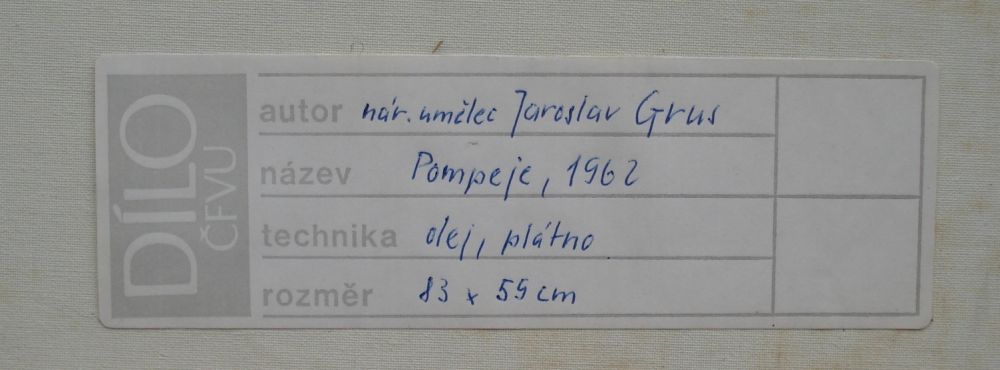 DÍLO
ČFVU
autor nár. umělec Jaroslav Grus
název Pompeje, 1962
technika olej, plátno
rozměr 83 x 59 cm